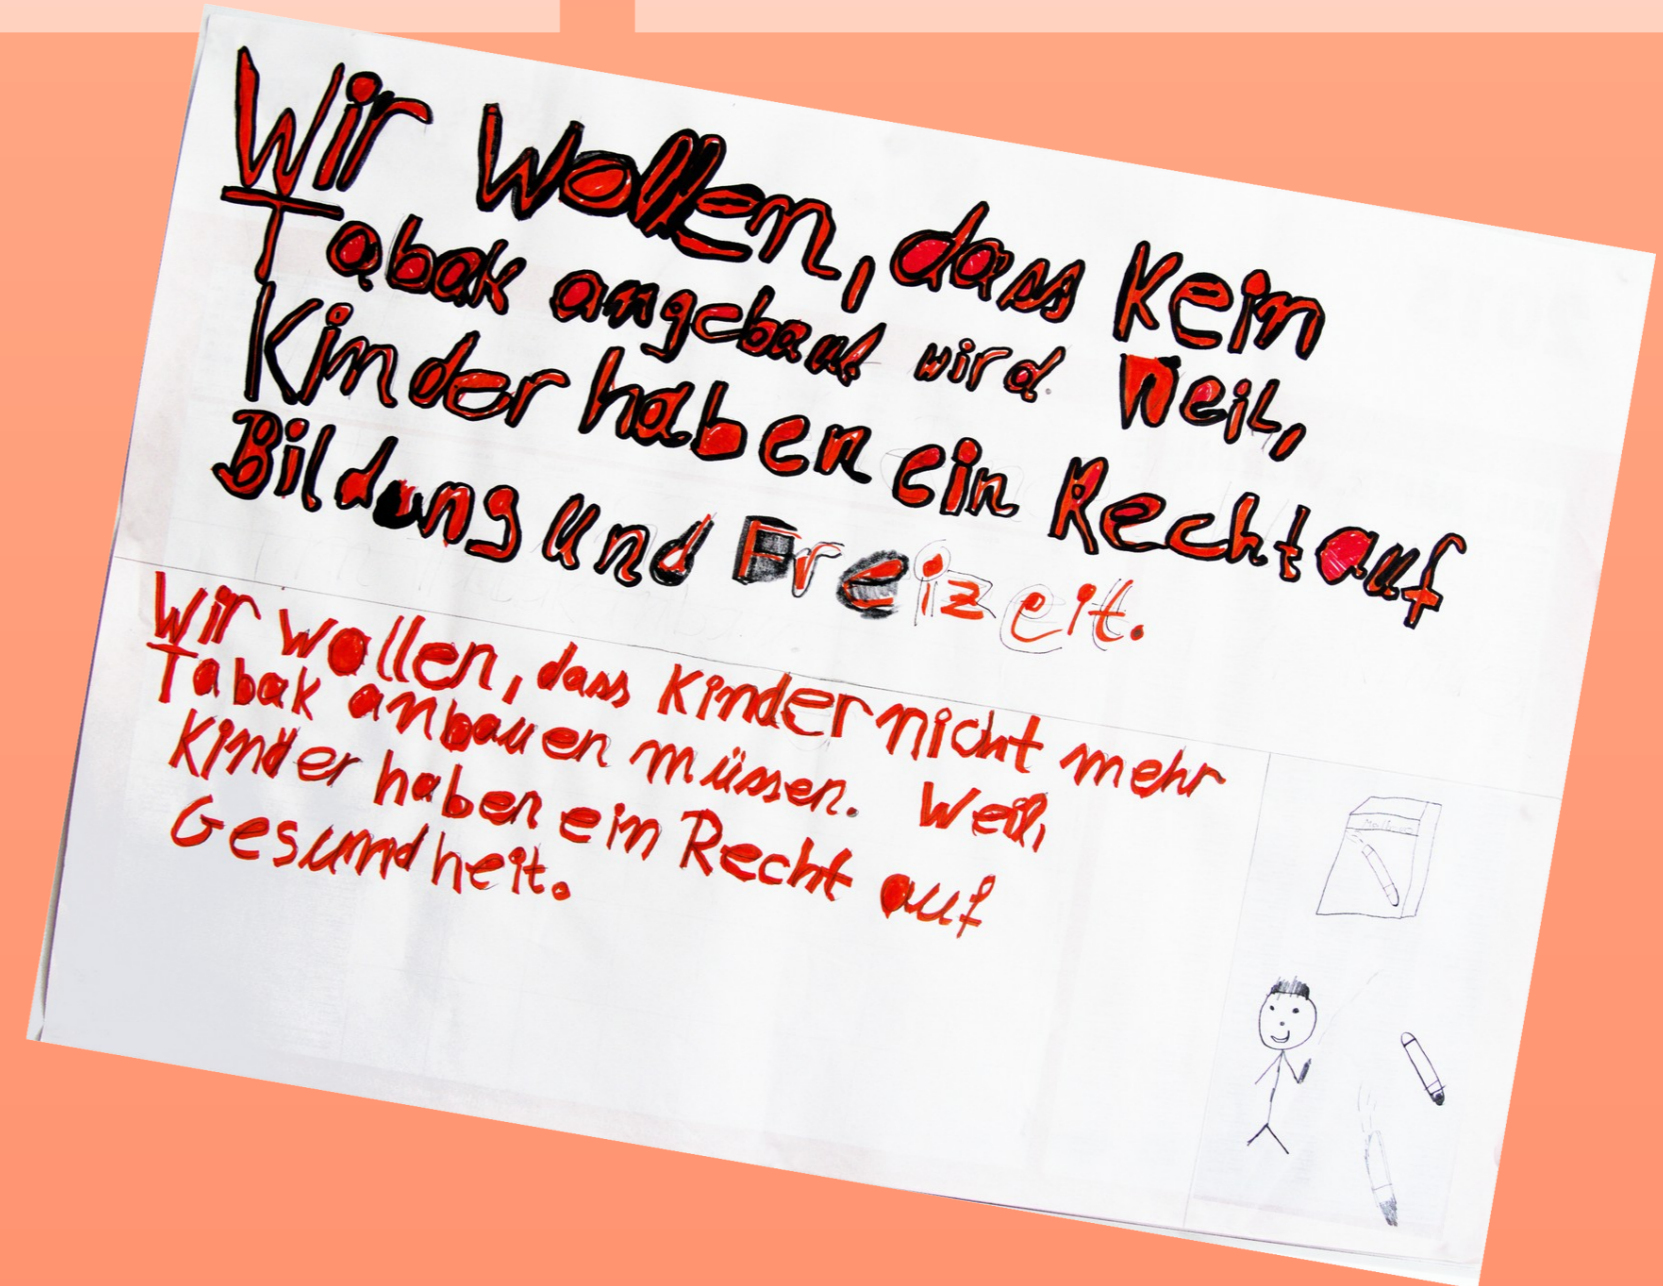 Wir Wollen, dass Kein
Tabak angebaut wird. Weil,
Kinder haben ein Recht auf
Bildung und Freizeit.
Wir wollen, dass Kinder nicht mehr
Tabak anbauen müssen. Weil,
Kinder haben ein Recht auf
Gesundheit.